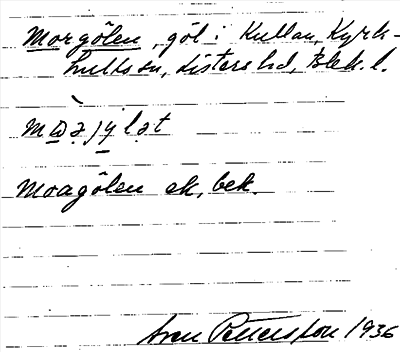 Morgölen, göl i Kullan, Kyrk-
hults sn, Listers hd, Blek. l.
Moagölen ek, bek.
Sven Petersson 1936